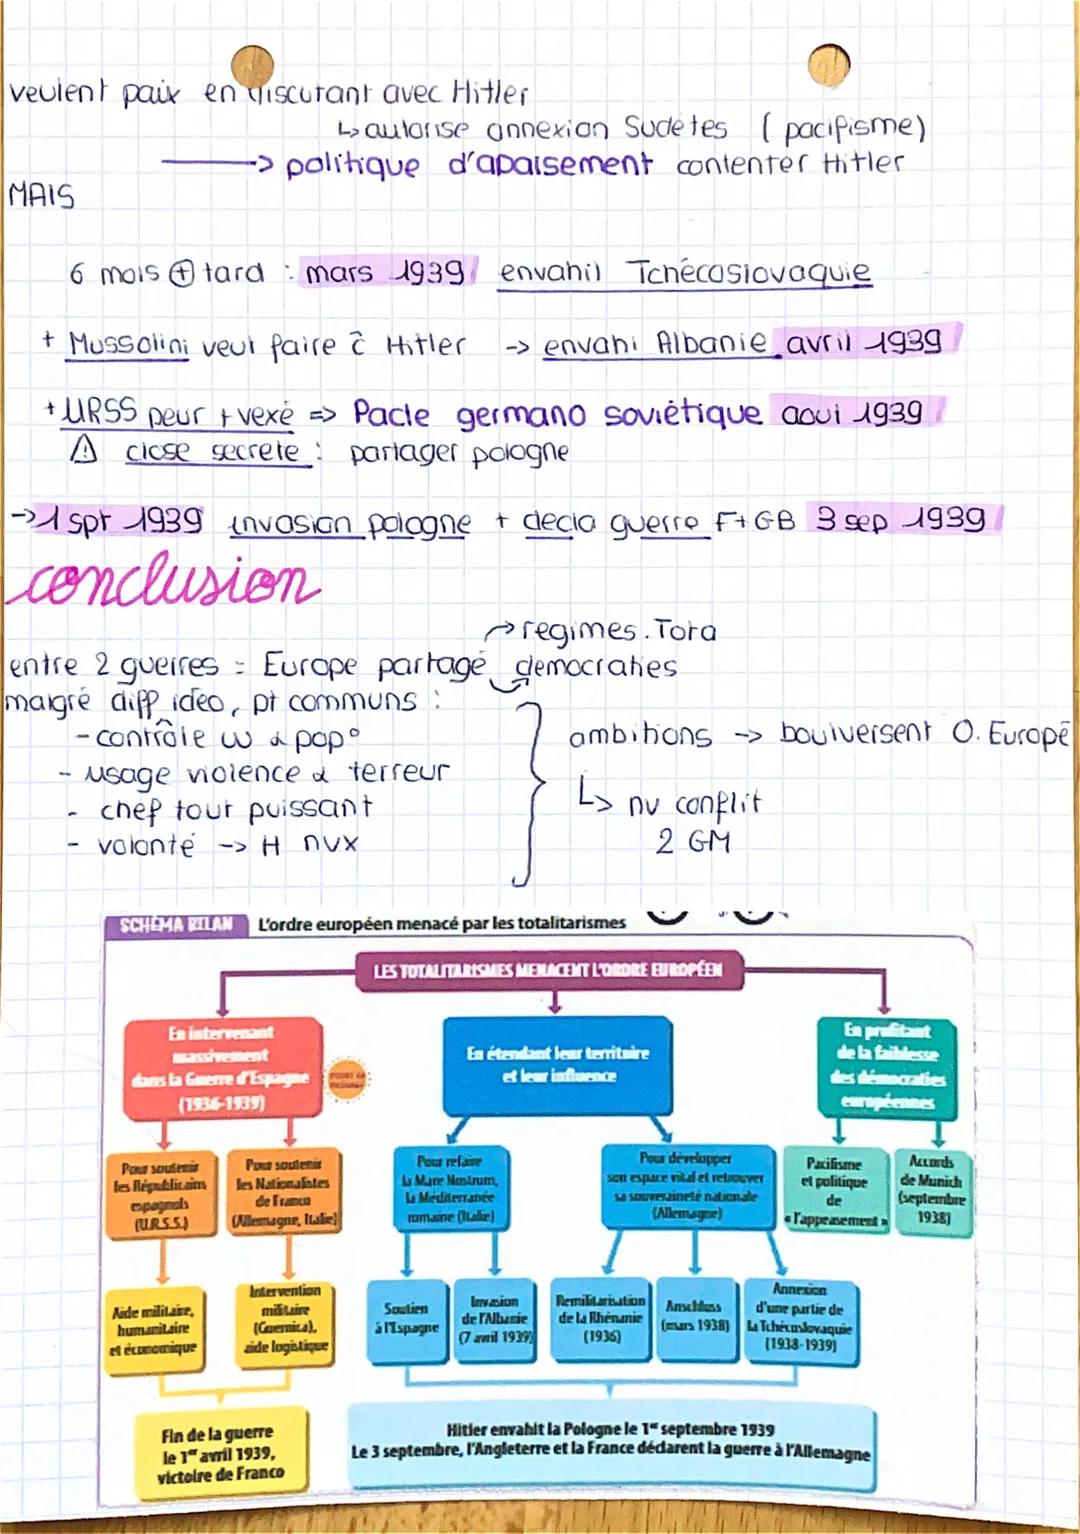 veulent paix en discutant avec Hitler
↳ autorise annexion Sudetes ( pacifisme)
→ politique d'apaisement contenter Hitler
MAIS
6 mois ⊕ tard : mars 1939 envahit Tchécoslovaquie
+ Mussolini veut faire c̄ Hitler -> envahi Albanie avril 1939
+ URSS peur + vexé => Pacte germano soviétique aout 1939
⚠ close secrete : partager pologne
-> 1 spt 1939 invasion pologne + decla guerre F+GB 3 sep 1939
conclusion
→ regimes. Tota
entre 2 guerres = Europe partagé democraties
malgré diff ideo, pt communs :
- contrôle pop°
- usage violence & terreur
- chef tout puissant
- volonté -> H nvx
ambitions -> boulversent O. Europé
↳ nv conflit
2 GM
SCHÉMA BILAN L'ordre européen menacé par les totalitarismes
LES TOTALITARISMES MENACENT L'ORDRE EUROPÉEN
En intervenant
massivement
dans la Guerre d'Espagne
(1936-1939)
En étendant leur territoire
et leur influence
En profitant
de la faiblesse
des démocraties
européennes
Pour soutenir
les Républicains
espagnols
(U.R.S.S.)
Pour soutenir
les Nationalistes
de Franco
(Allemagne, Italie)
Pour refaire
la Mare Nostrum,
la Méditerranée
romaine (Italie)
Pour développer
son espace vital et retrouver
sa souveraineté nationale
(Allemagne)
Pacifisme
et politique
de
« l'appeasement »
Accords
de Munich
(septembre
1938)
Aide militaire,
humanitaire
et économique
Intervention
militaire
(Guernica),
aide logistique
Soutien
à l'Espagne
Invasion
de l'Albanie
(7 avril 1939)
Remilitarisation
de la Rhénanie
(1936)
Anschluss
(mars 1938)
Annexion
d'une partie de
la Tchécoslovaquie
(1938-1939)
Fin de la guerre
le 1er avril 1939,
victoire de Franco
Hitler envahit la Pologne le 1er septembre 1939
Le 3 septembre, l'Angleterre et la France déclarent la guerre à l'Allemagne